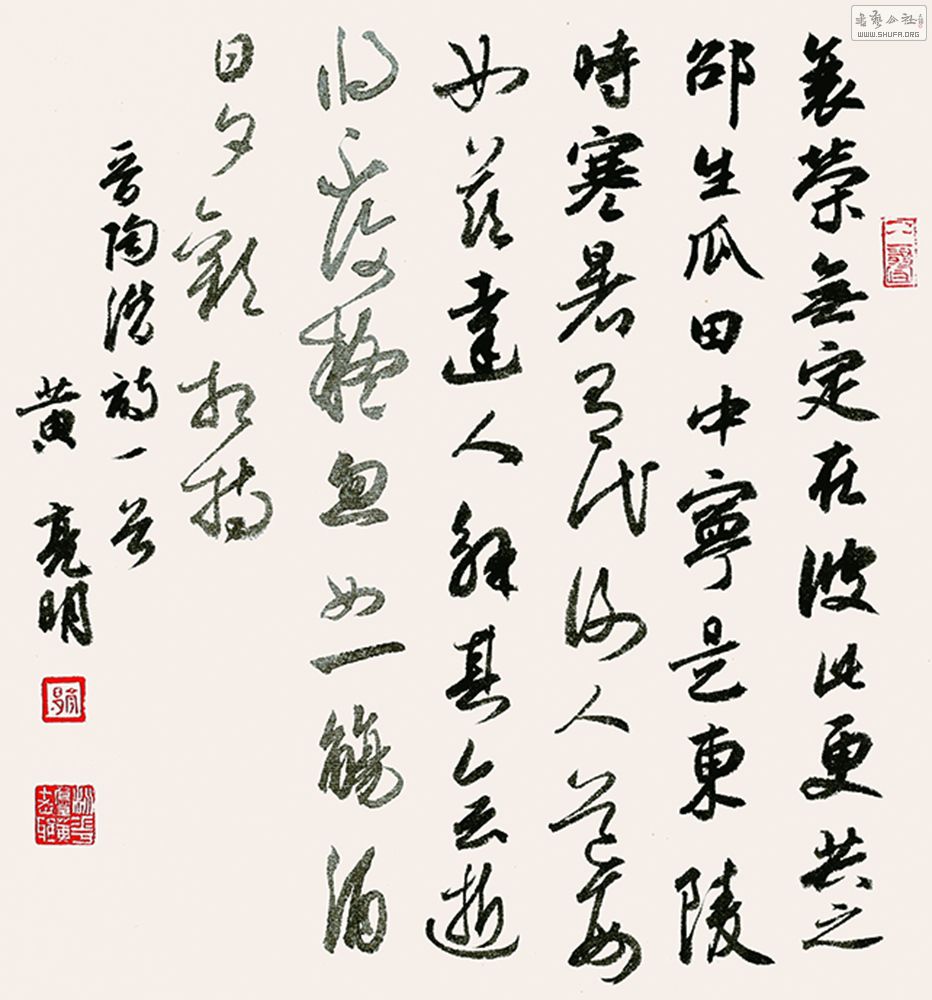 衰榮無定在彼此更共之
邵生瓜田中寧是東陵
時寒暑有代謝人道每
如茲達人解其會逝
將不復疑忽如一觴酒
日夕歡相持
晉陶潛詩一首
黄亮明
書藝公社
WWW.SHUFA.ORG